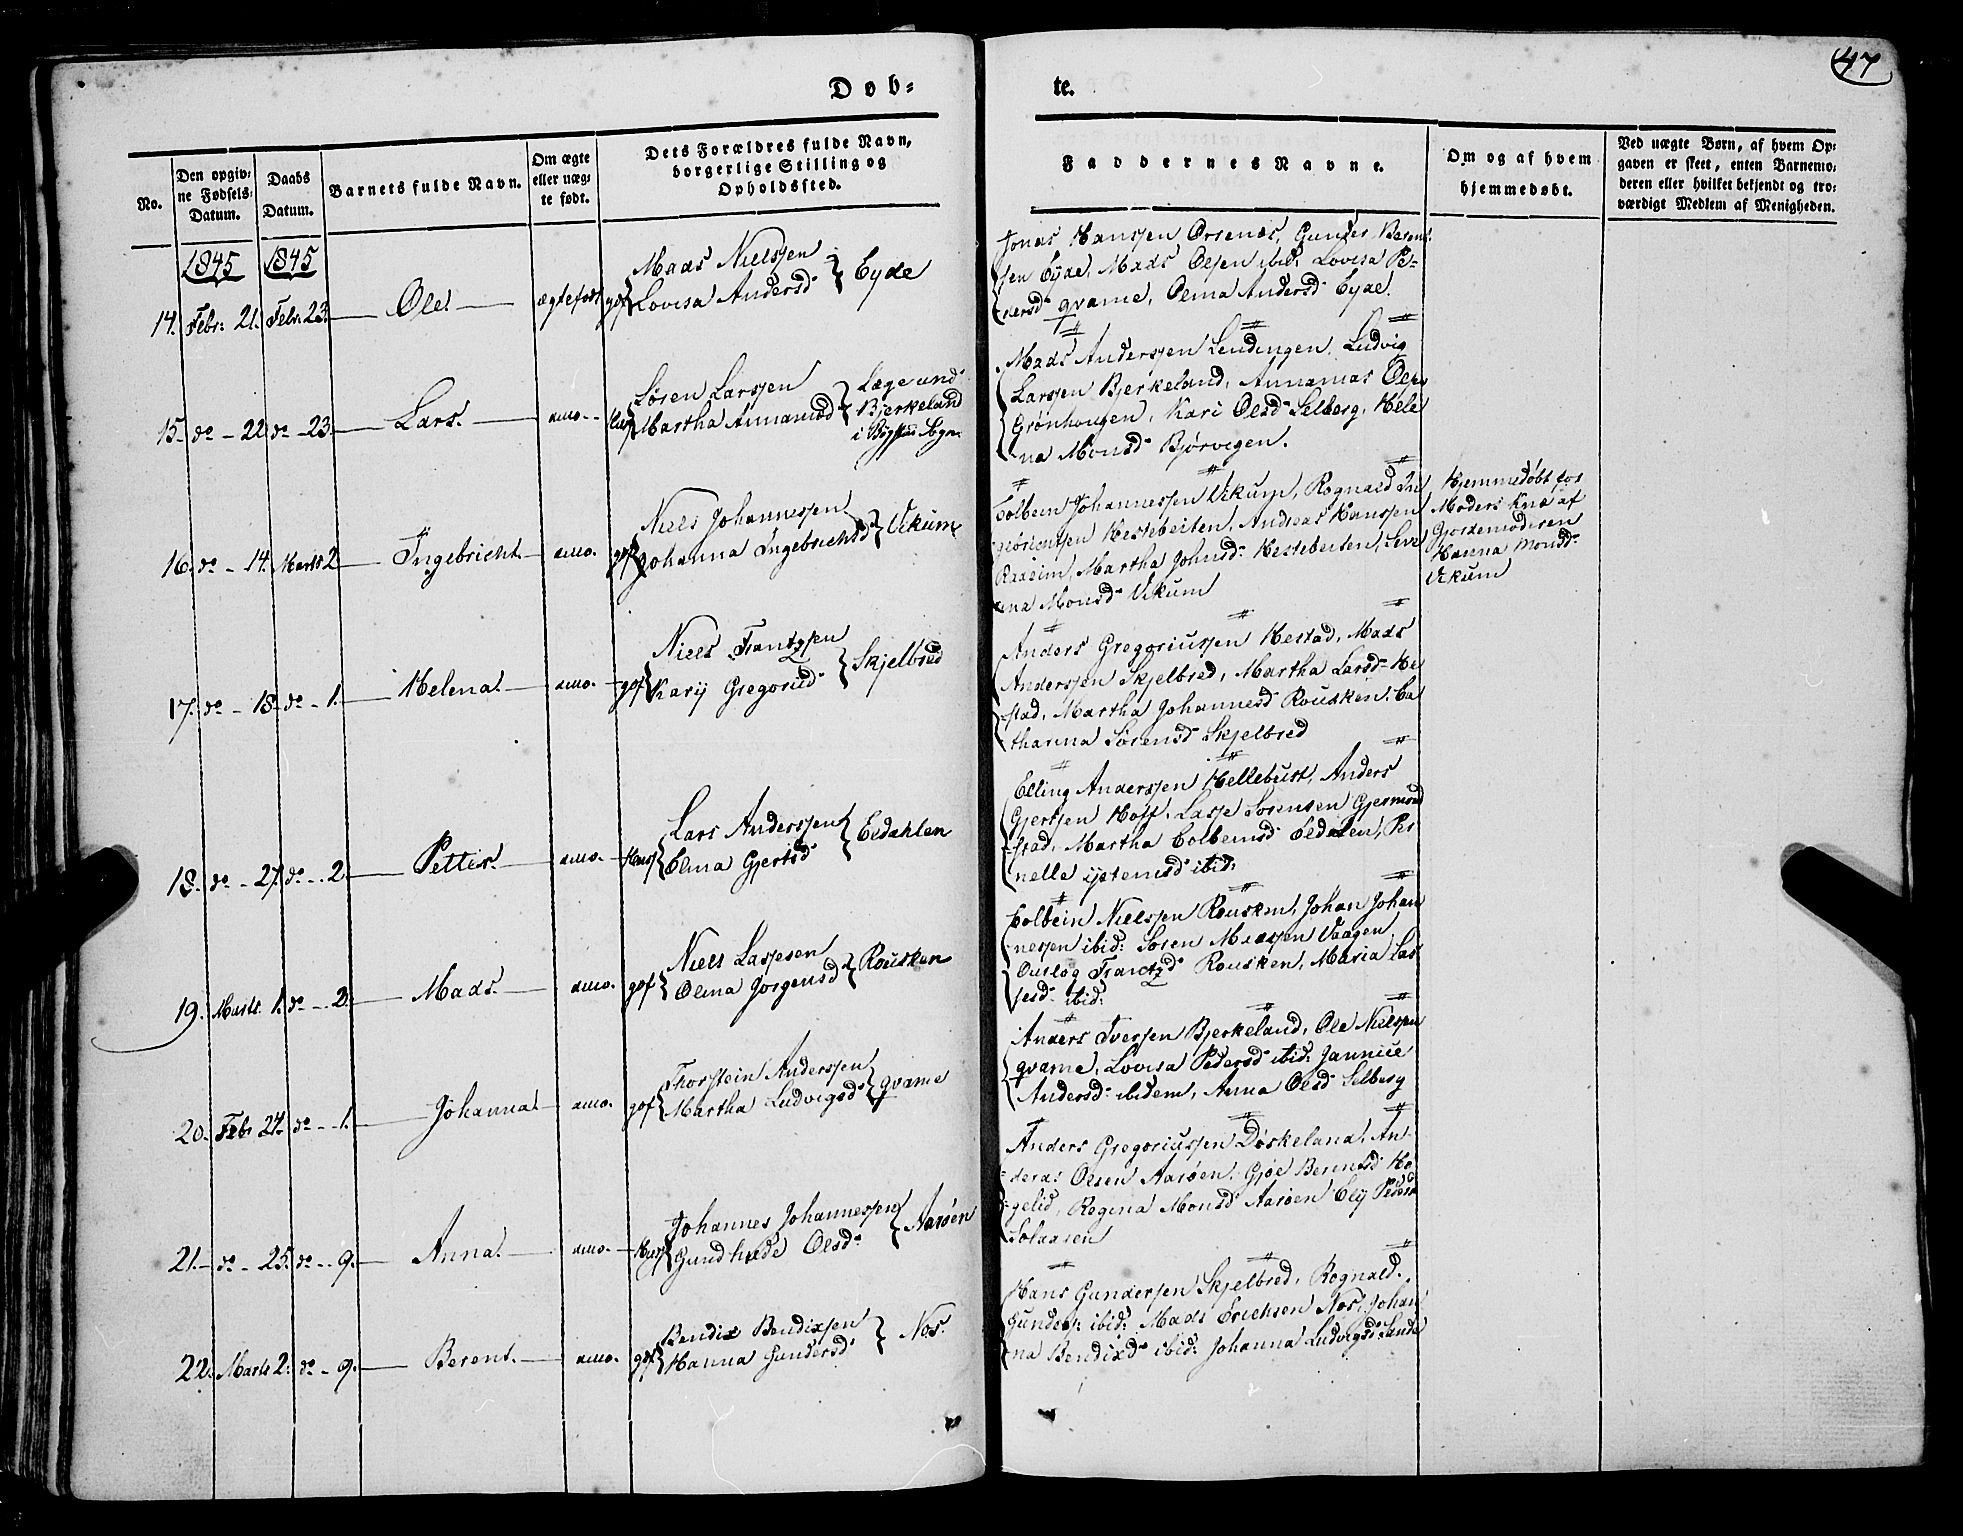 47
Døb=
te.
No.
Den opgiv=
ne Fødsels=
Datum.
Daabs
Datum.
Barnets fulde Navn.
Om ægte
eller uæg=
te født.
Dets Forældres fulde Navn,
borgerlige Stilling og
Opholdssted.
Faddernes Navne.
Om og af hvem
hjemmedøbt.
Ved uægte Børn, af hvem Op=
gaven er skeet, enten Barnemo=
deren eller hvilket bekjendt og tro=
værdigt Medlem af Menigheden.
1845 1845
14. Febr: 21. Febr. 23. Ole. ægtefødt gbf
Mads Nielssen
Lovisa Andersd
Eyde
Jonas Hanssen Orsenes, Gunder Berent
sen Eyde, Mads Olsen ibid: Lovisa Pe=
dersd qvame, Olina Andersd Eyde.
15. do - 22. do - 23. Lars. amo.
Søren Larssen
Martha Annamasd
Læge und
Bjerkeland
i Sogn
Mads Anderssen Lendingen, Ludvig
Larssen Bjerkeland, Annanias Olsen
Grønhougen, Kari Olsd Selberg, Hele
na Monsd Bjørvegen.
16. do - 14. Marts 2. Ingebricht. amo. gbf
Niels Johannessen
Johanna Ingebrichtsd
Vikum
Tolbein Johannessen Vikum, Rognald In
Hestebeiten, Andreas Hanssen
Raaeim, Martha Johnsd Hestebeiten, Seve
rina Monsd Vikum
Hjemmedøbt for
Moders Knæ af
Gjordemoderen
Hanna Monsd
Vikum
17. do - 18. do - 1. Helena. amo. gbf
Niels Frantzsen
Karij Gregorsd
Skjelbred
Anders Gregoriussen Hestad, Mads
Anderssen Skjelbred, Martha Larsd He
stad, Martha Johannesd Rousken, Ca
tharina Sørensd Skjelbred
18. do - 27. do - 2. Petter. amo. Huusf
Lars Anderssen
Elina Gjertsd
Eedahlen
Elling Anderssen Hellebust, Anders
Gjertsen Hoff, Lasse Sørensen Gjermund
stad, Martha Tolbeinsd Eedalen, Per
nelle ijsteinsd ibid:
19. Marts 1. do - 2. Mads. amo. gbf
Niels Lassesen
Olina Jørgensd
Rousken
Tolbein Nielssen Rousken, Johan Johan
nessen ibid: Søren Madssen Vaagen
Ouslog Frantzd Rousken, Maria Las
sesd ibid:
20. Feb. 24. do - 1. Johanna. amo. gbf
Thorstein Anderssen
Martha Ludvigsd
qvame
Anders Iversen Bjerkeland, Ole Nielssen
qvame, Lovisa Pedersd ibid: Jannice
Andersd ibidem, Anna Olsd Selberg
21. do - 25. do - 9. Anna. amo. Huusf
Johannes Johannessen
Gundhilde Olsd
Aarøen
Anders Gregoriussen Døskeland, An
dreas Olsen Aarøen, Gjøe Berentsd Hø
gelid, Regina Monsd Aarøen Elij Pedersd
Solaasen
22. Marts 2. do - 9. Berent. amo. gbf
Bendix Bendixsen
Hanna Gundersd
Nos.
Hans Gundersen Skjelbred, Rognald
Gunders: ibid: Mads Erichsen Nos, Johan
na Bendixd ibid: Johanna Ludvigsd Sande